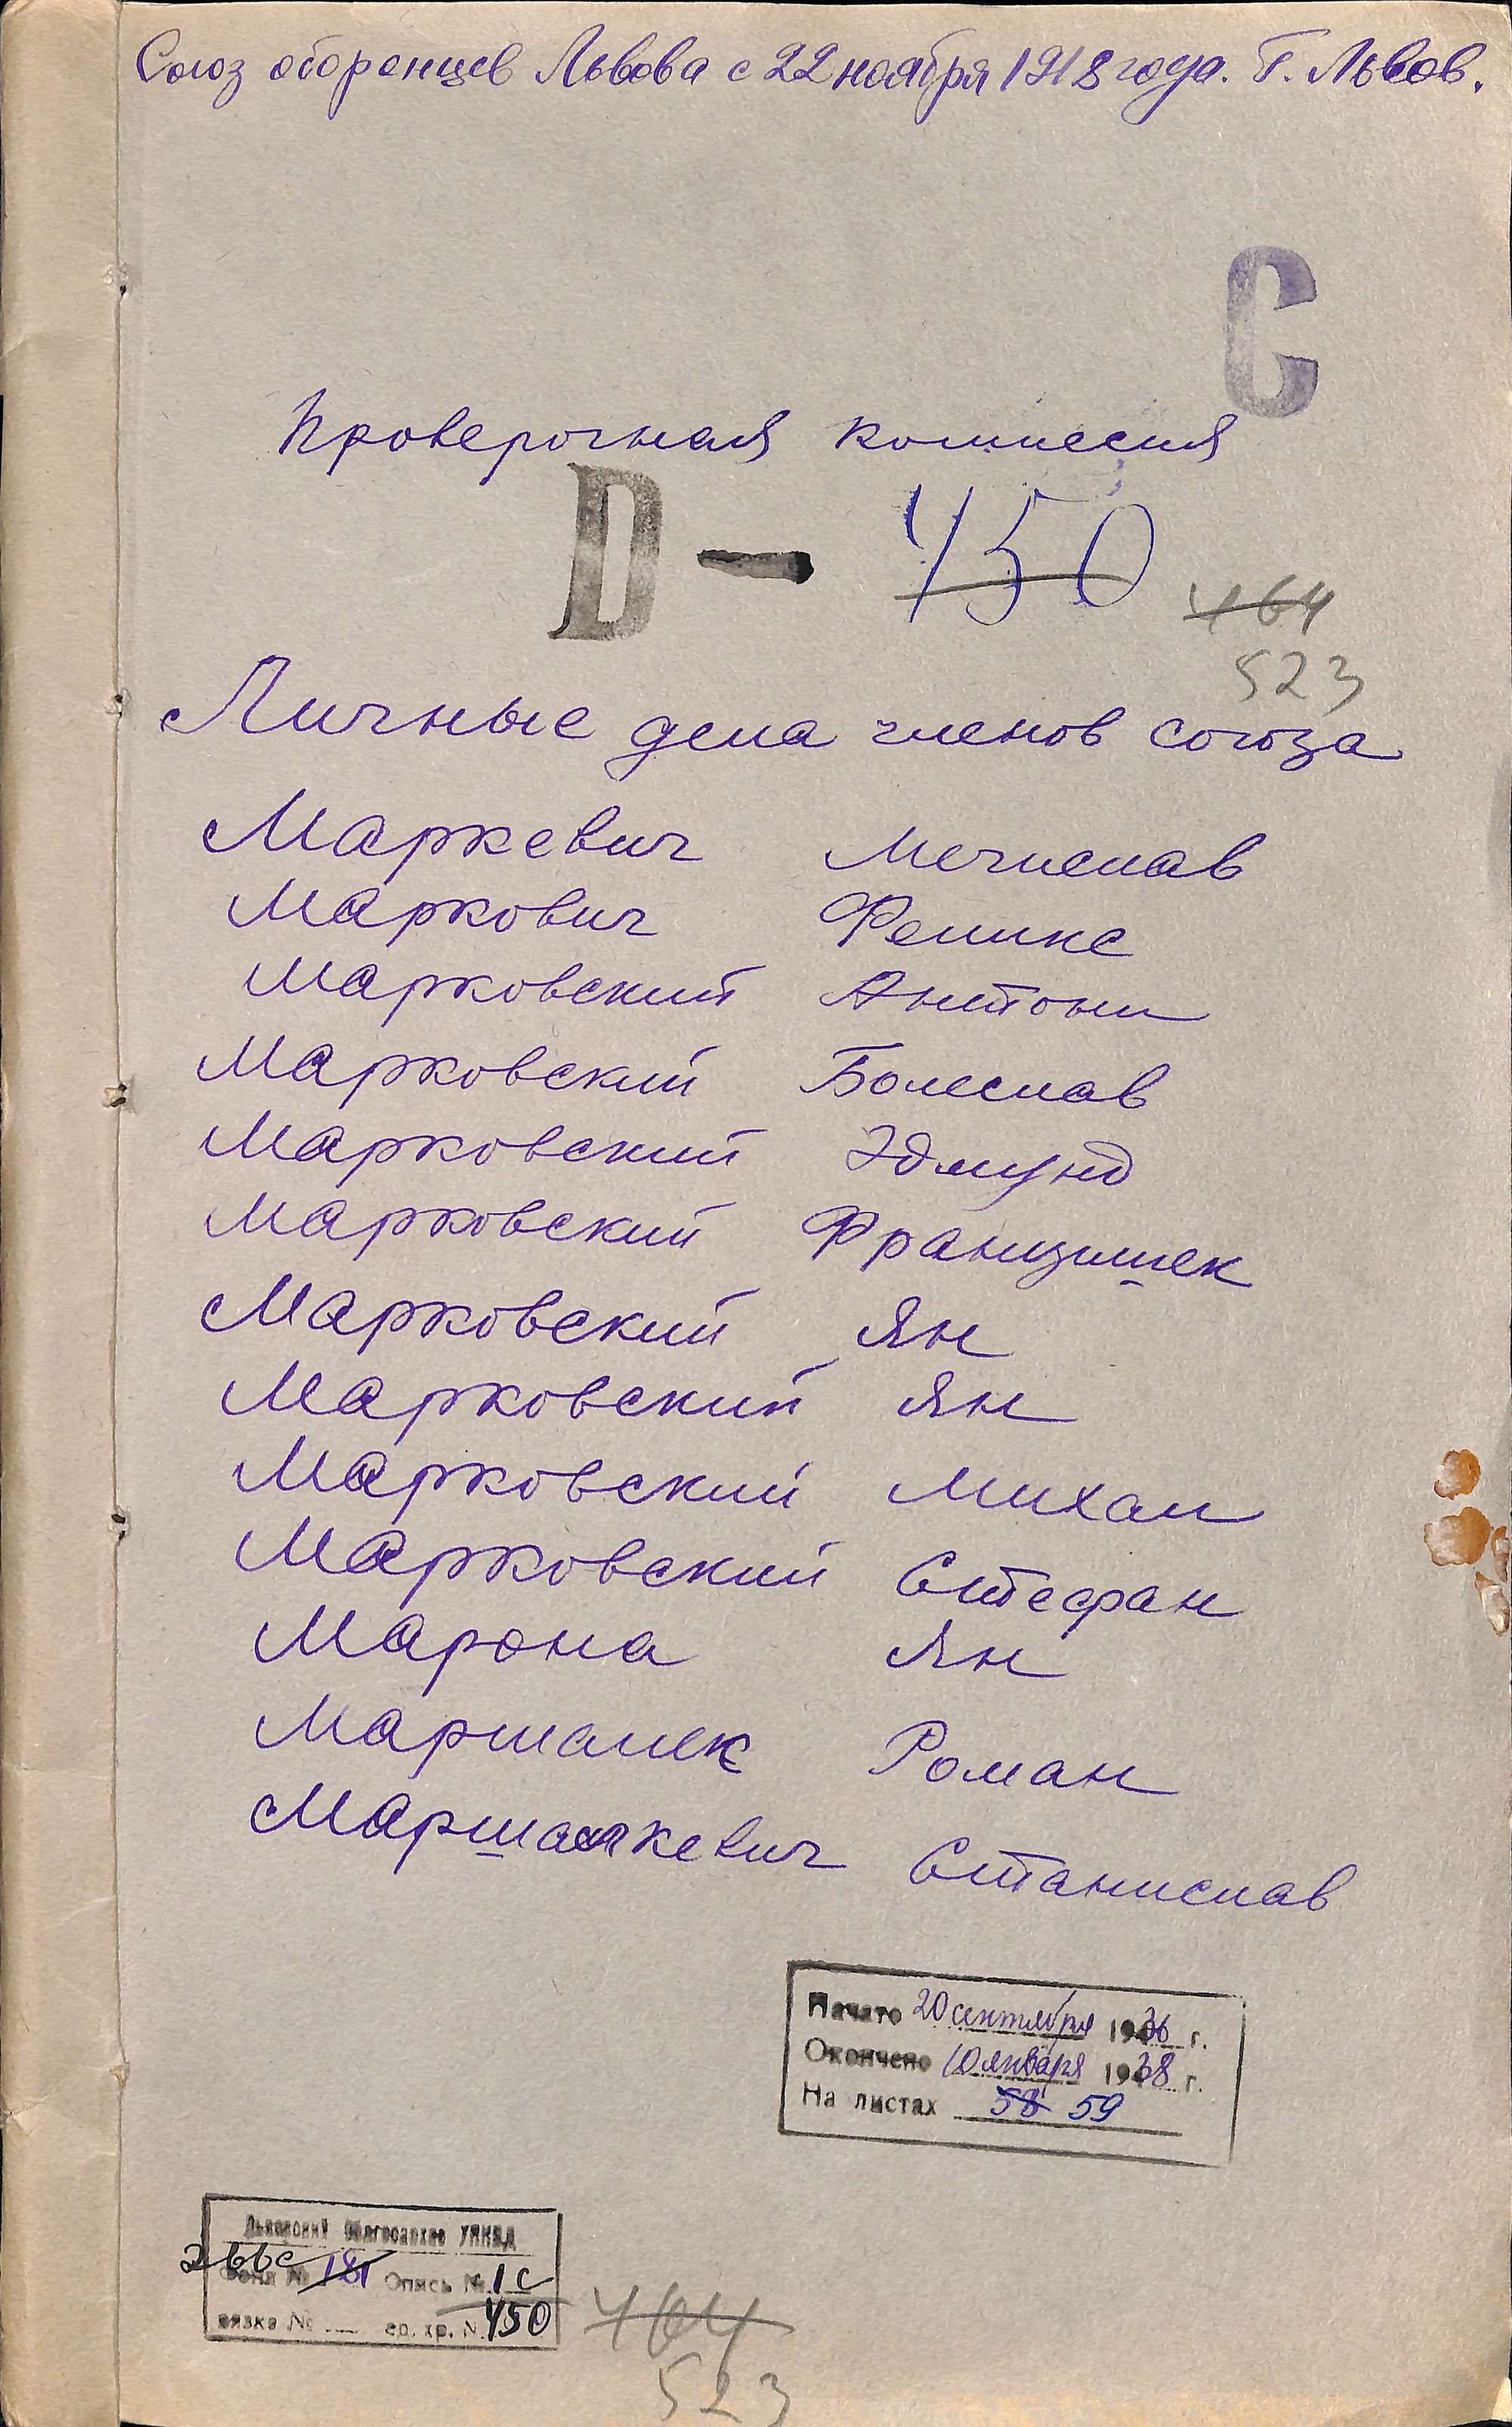 Союз оборенцев Львова с 22 ноября 1918 года. Г. Львов.
С
Проверочная комиссия
D — 450
464
523
Личные дела членов союза
Маркевич Мечислав
Маркович Феликс
Марковский Антони
Марковский Болеслав
Марковский Эдмунд
Марковский Францишек
Марковский Ян
Марковский Ян
Марковский Михал
Марковский Стефан
Марона Ян
Маршалек Роман
Маршалкевич Станислав
Начато 20 сентября 1936 г.
Окончено 10 января 1938 г.
На листах 58 59
Львовский Облгосархив УНКВД
266с
Фонд № 181 Опись № 1с
вязка № — ед. хр. № 450
464
523